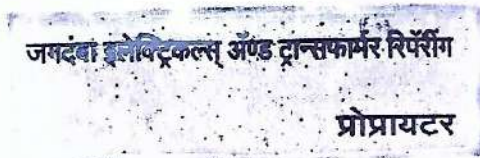 जगदंबा इलेक्ट्रिकल्स् ॲण्ड ट्रान्सफार्मर रिपेरींग
प्रोप्रायटर